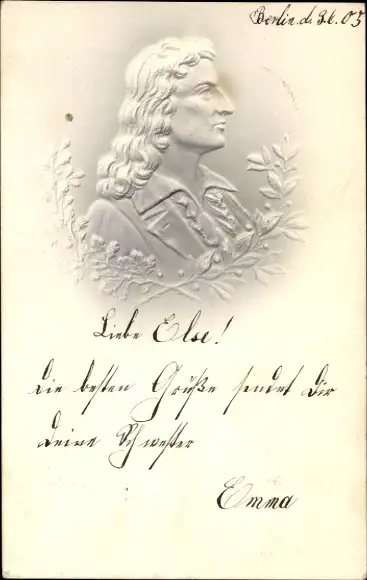 Berlin. d. 3.6. 05
Liebe Else!
die besten Grüße sendet Dir
Deine Schwester
Emma